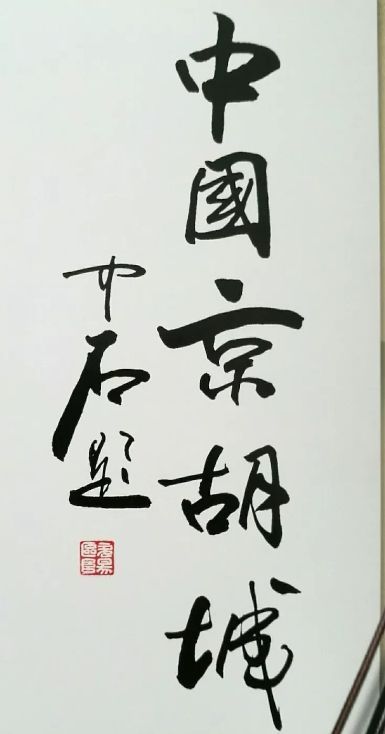 中國京胡城
中石題